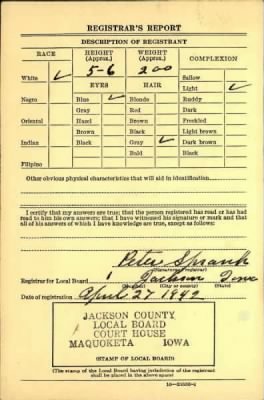 REGISTRAR'S REPORT
DESCRIPTION OF REGISTRANT
RACE HEIGHT (Approx.) WEIGHT (Approx.) COMPLEXION
White ✓ 5-6 200 Sallow
EYES HAIR Light ✓
Negro Blue ✓ Blonde Ruddy
Gray Red Dark
Oriental Hazel Brown Freckled
Brown Black Light brown
Indian Black Gray ✓ Dark brown
Bald Black
Filipino
Other obvious physical characteristics that will aid in identification
I certify that my answers are true; that the person registered has read or has had read to him his own answers; that I have witnessed his signature or mark and that all of his answers of which I have knowledge are true, except as follows:
Peter Sprank
(Signature of registrar)
Registrar for Local Board 1 Jackson Iowa
(Number) (City or county) (State)
Date of registration April 27 1942
JACKSON COUNTY
LOCAL BOARD
COURT HOUSE
MAQUOKETA IOWA
(STAMP OF LOCAL BOARD)
(The stamp of the Local Board having jurisdiction of the registrant shall be placed in the above space)